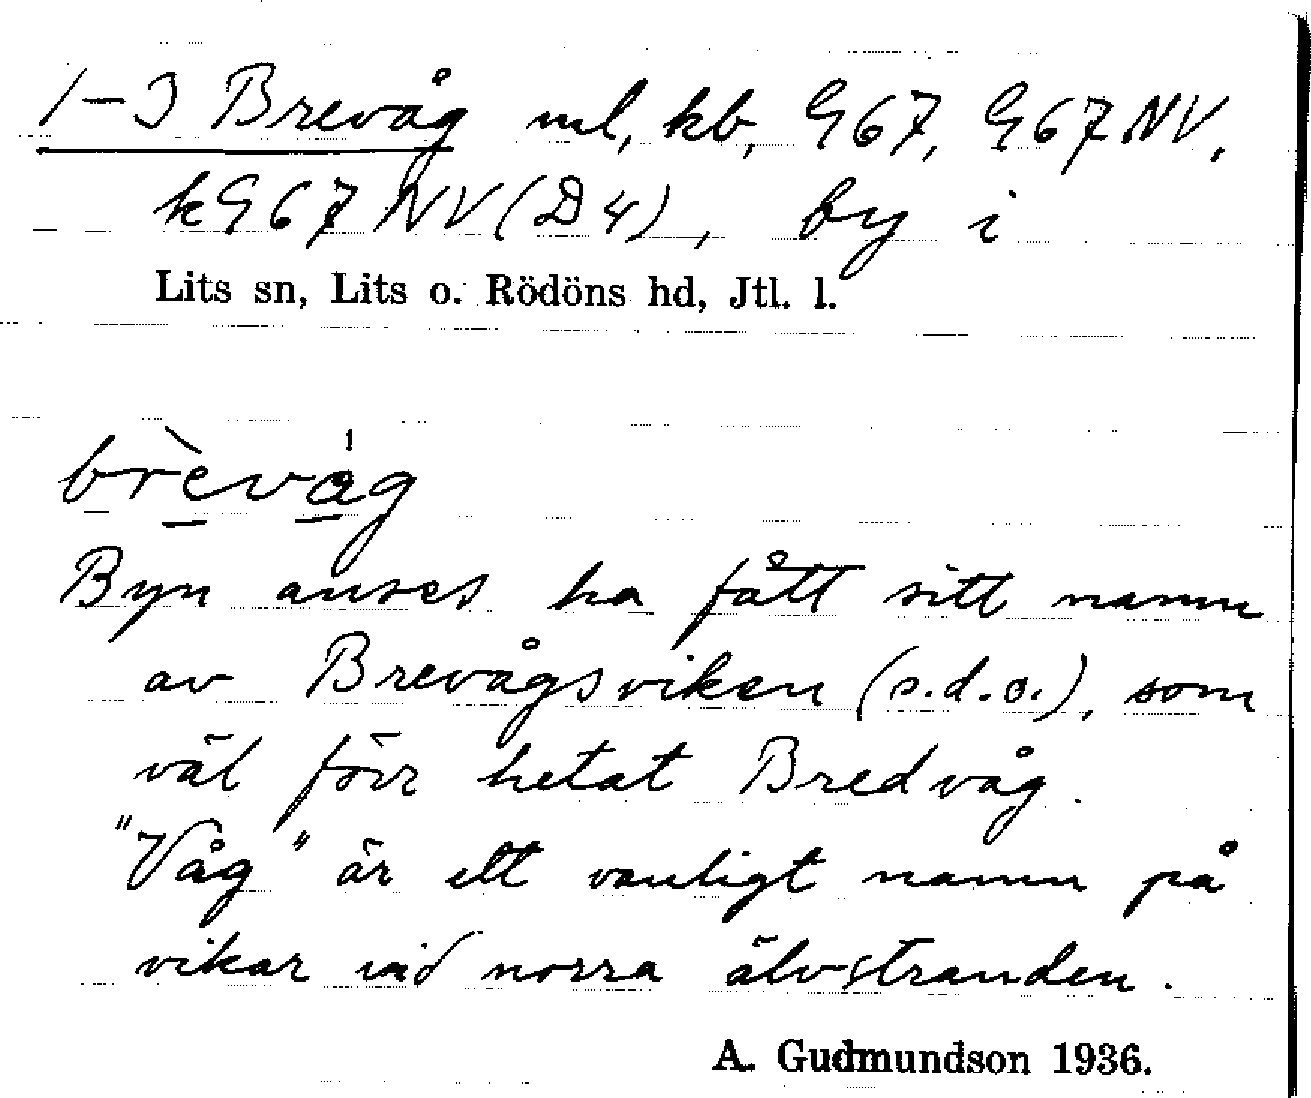 1–3 Brevåg ml, kb, G67, G67NV,
kG67 NV (D4), by i
Lits sn, Lits o. Rödöns hd, Jtl. l.
brèvåg
Byn anses ha fått sitt namn
av Brevågsviken (s.d.o.), som
väl förr hetat Bredvåg.
"Våg" är ett vanligt namn på
vikar vid norra älvstranden.
A. Gudmundson 1936.